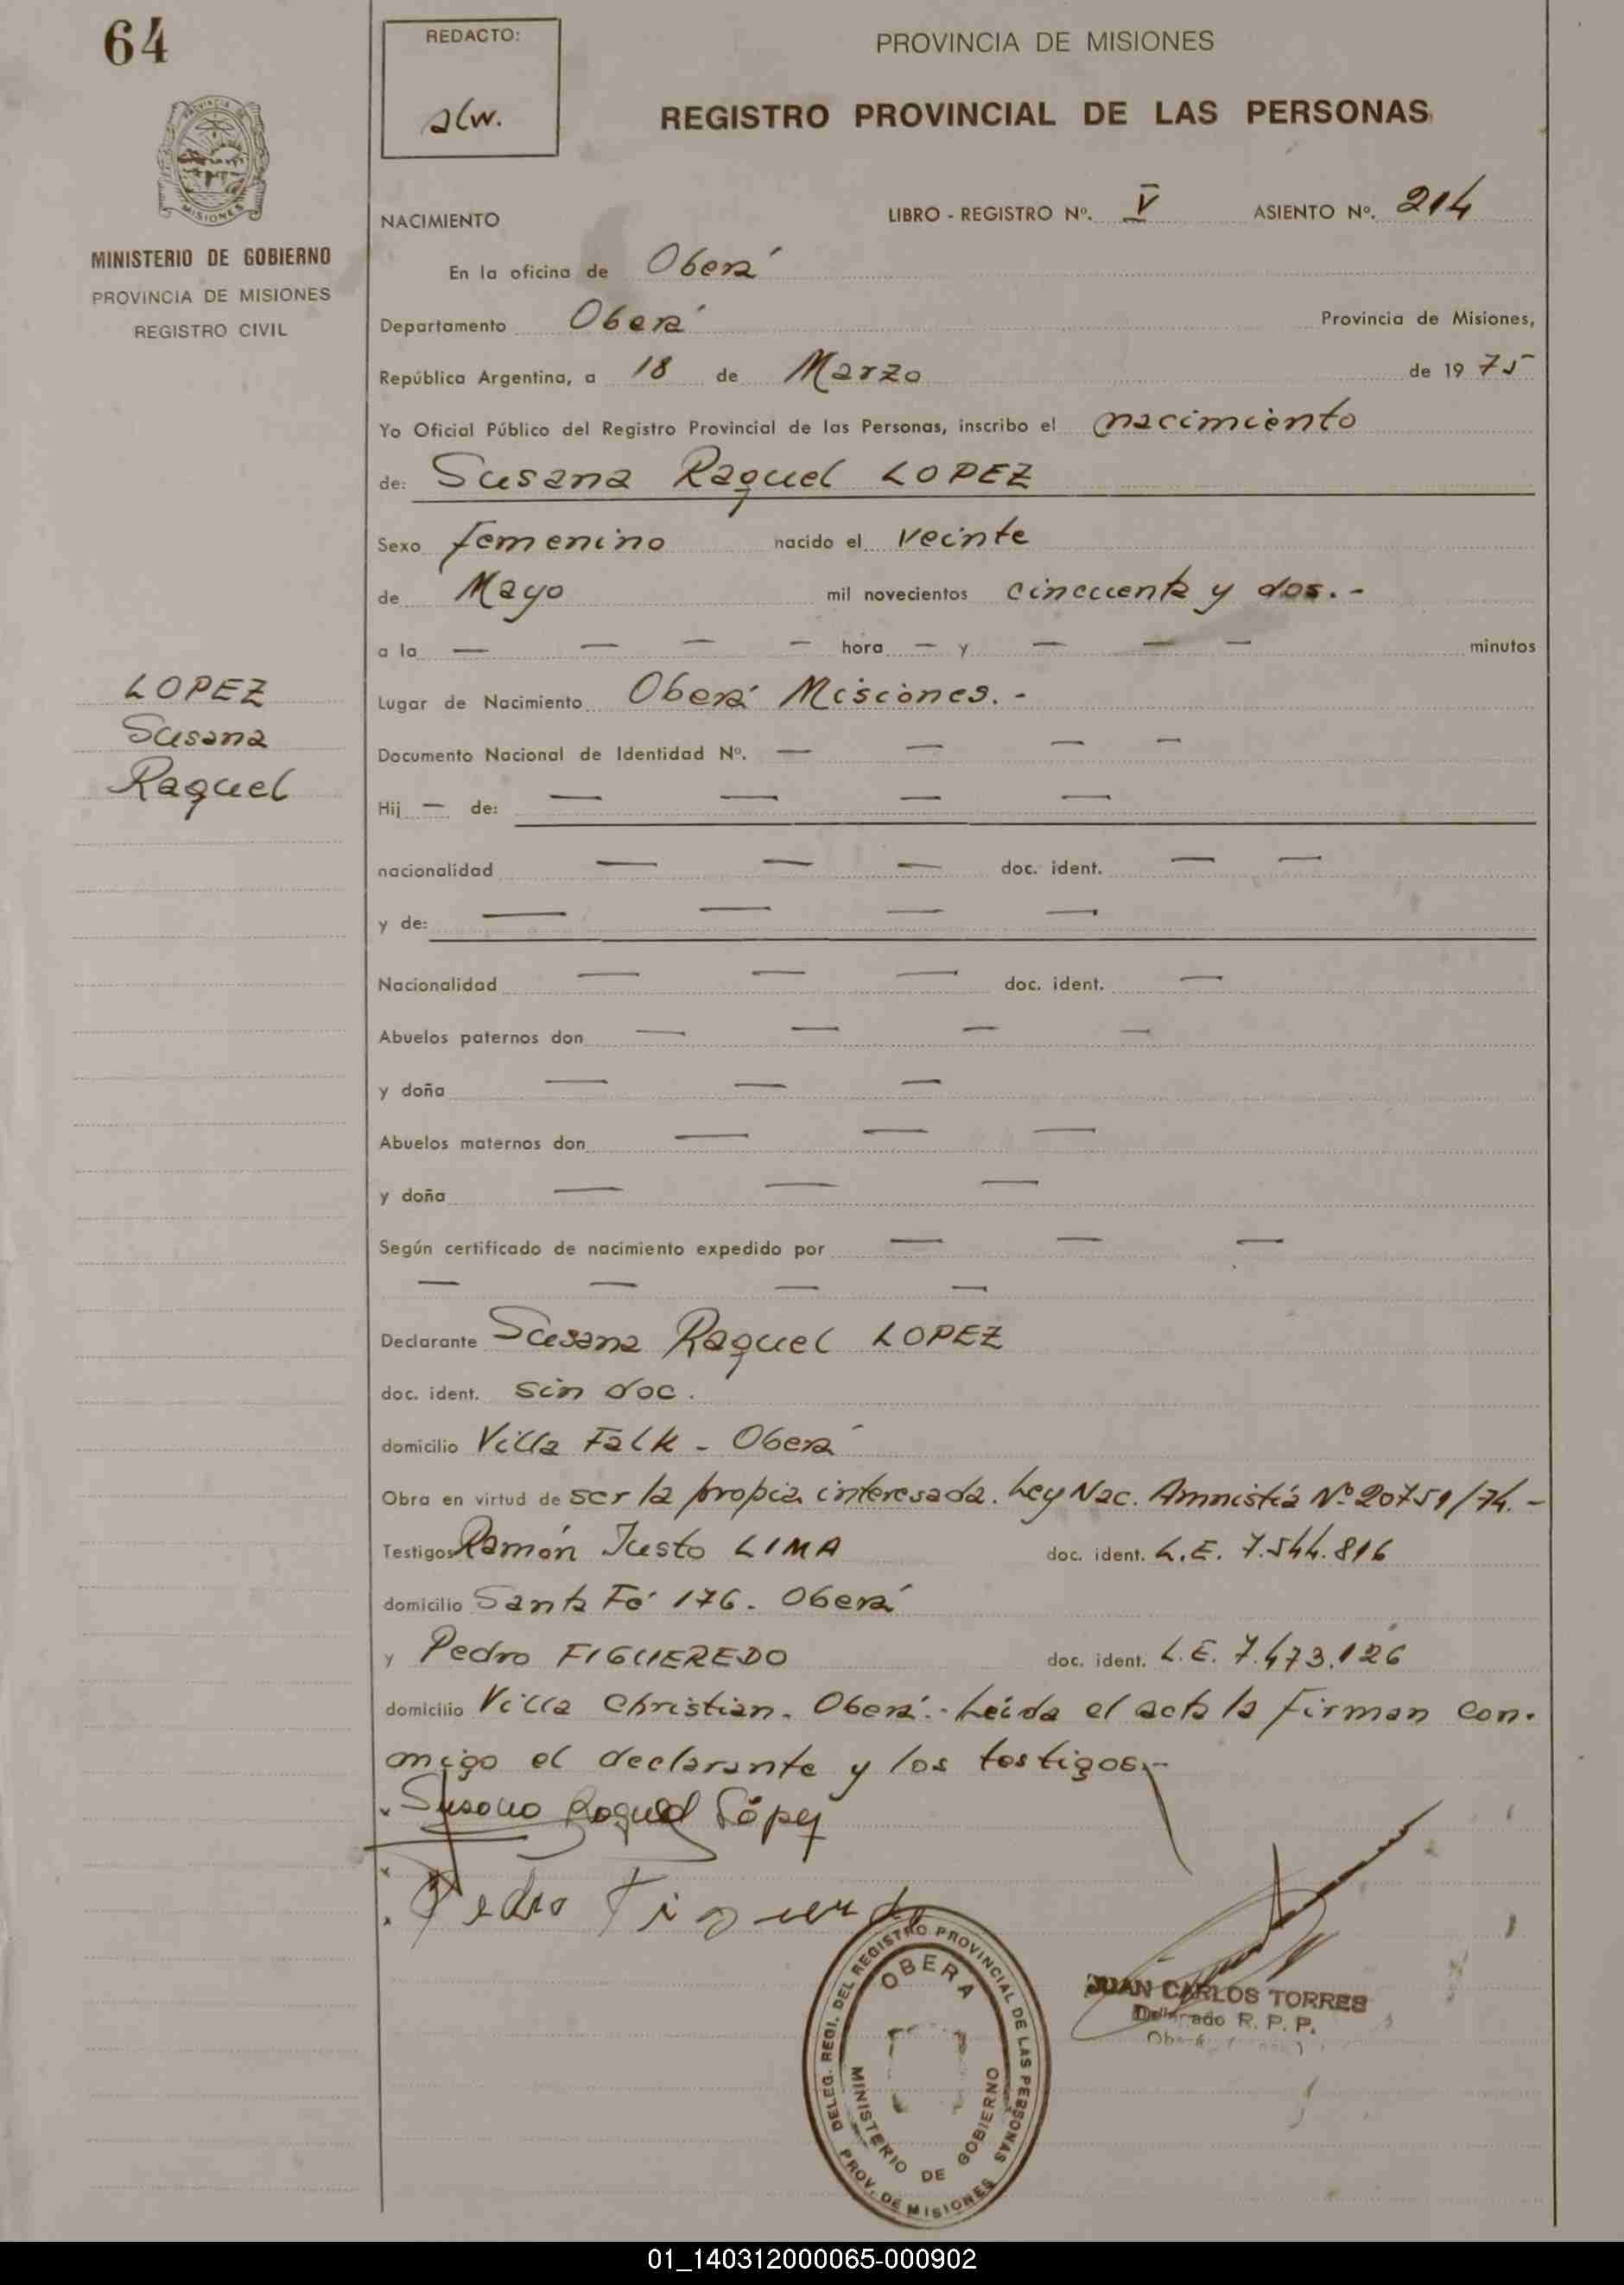 64
REDACTO:
alw.
PROVINCIA DE MISIONES
REGISTRO PROVINCIAL DE LAS PERSONAS
PROVINCIA DE
MISIONES
MINISTERIO DE GOBIERNO
PROVINCIA DE MISIONES
REGISTRO CIVIL
NACIMIENTO
LIBRO - REGISTRO Nº. V ASIENTO Nº. 214
En la oficina de Oberá
Departamento Oberá Provincia de Misiones,
República Argentina, a 18 de Marzo de 1975
Yo Oficial Público del Registro Provincial de las Personas, inscribo el nacimiento
de: Susana Raquel LOPEZ
Sexo femenino nacido el veinte
de Mayo mil novecientos cincuenta y dos.-
a la — — — — hora — y — — — minutos
LOPEZ
Susana
Raquel
Lugar de Nacimiento Oberá Misiones.-
Documento Nacional de Identidad Nº. — — — —
Hij — de: — — — —
nacionalidad — — — doc. ident. — —
y de: — — — —
Nacionalidad — — — doc. ident. —
Abuelos paternos don — — — —
y doña — — —
Abuelos maternos don — — —
y doña — — —
Según certificado de nacimiento expedido por — — —
— — — —
Declarante Susana Raquel LOPEZ
doc. ident. sin doc.
domicilio Villa Falk - Oberá
Obra en virtud de ser la propia interesada. Ley Nac. Amnistía Nº 20751/74.-
Testigos Ramón Justo LIMA doc. ident. L.E. 7.544.816
domicilio Santa Fé 176. Oberá
y Pedro FIGUEREDO doc. ident. L.E. 7.473.126
domicilio Villa Christian. Oberá.- Leída el acta la firman con-
migo el declarante y los testigos.-
Susana Raquel López
Pedro Figueredo
DELEG. REGI. DEL REGISTRO PROVINCIAL DE LAS PERSONAS
PROV. DE MISIONES
OBERA
MINISTERIO DE GOBIERNO
JUAN CARLOS TORRES
R. P. P.
01_140312000065-000902